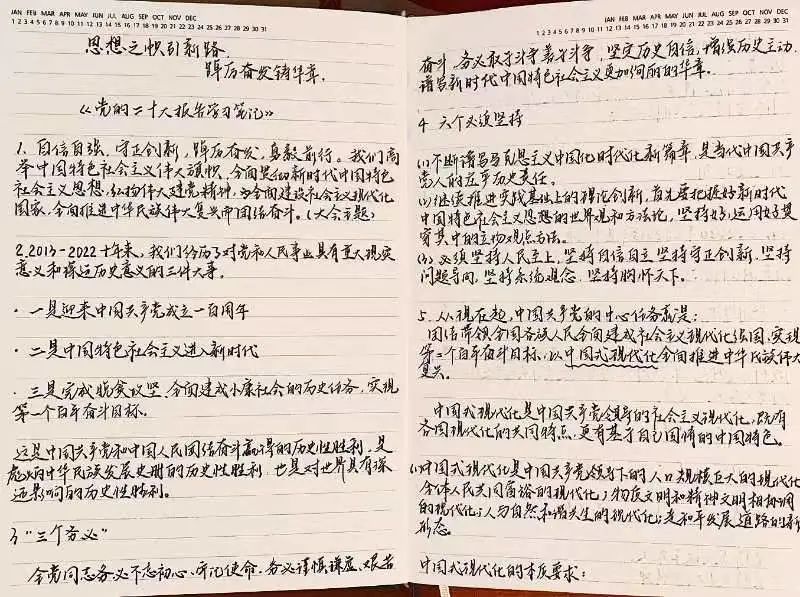 JAN FEB MAR APR MAY JUN JUL AUG SEP OCT NOV DEC
1 2 3 4 5 6 7 8 9 10 11 12 13 14 15 16 17 18 19 20 21 22 23 24 25 26 27 28 29 30 31
思想之帜引新路
踔厉奋发铸华章.
《党的二十大报告学习笔记》
1. 自信自强、守正创新,踔厉奋发,勇毅前行。我们高
举中国特色社会主义伟大旗帜,全面贯彻新时代中国特色
社会主义思想,弘扬伟大建党精神,为全面建设社会主义现代化
国家,全面推进中华民族伟大复兴而团结奋斗。(大会主题)
2. 2013-2022十年来,我们经历了对党和人民事业具有重大现实
意义和深远历史意义的三件大事。
· 一是迎来中国共产党成立一百周年
· 二是中国特色社会主义进入新时代
· 三是完成脱贫攻坚、全面建成小康社会的历史任务,实现
第一个百年奋斗目标.
这是中国共产党和中国人民团结奋斗赢得的历史性胜利,是
彪炳中华民族发展史册的历史性胜利,也是对世界具有深
远影响的历史性胜利。
3 "三个务必"
全党同志务必不忘初心、牢记使命,务必谨慎谦虚、艰苦
JAN FEB MAR APR MAY JUN JUL AUG SEP OCT NOV DEC
1 2 3 4 5 6 7 8 9 10 11 12 13 14 15 16 17 18 19 20 21 22 23 24 25 26 27 28 29 30 31
奋斗,务必敢于斗争善于斗争,坚定历史自信,增强历史主动,
谱写新时代中国特色社会主义更加绚丽的华章。
4 六个必须坚持
(1) 不断谱写马克思主义中国化时代化新篇章,是当代中国共产
党人的庄严历史责任。
(2) 继续推进实践基础上的理论创新,首先要把握好新时代
中国特色社会主义思想的世界观和方法论,坚持好、运用好贯
穿其中的立场观点方法。
(3) 必须坚持人民至上,坚持自信自立坚持守正创新,坚持
问题导向,坚持系统观念,坚持胸怀天下。
5. 从现在起,中国共产党的中心任务就是:
团结带领全国各族人民全面建成社会主义现代化强国,实现
第二个百年奋斗目标,以中国式现代化全面推进中华民族伟大
复兴。
中国式现代化是中国共产党领导的社会主义现代化,既有
各国现代化的共同特点,更有基于自己国情的中国特色。
(1) 中国式现代化是中国共产党领导下的人口规模巨大的现代化
全体人民共同富裕的现代化;物质文明和精神文明相协调
的现代化;人与自然和谐共生的现代化;走和平发展道路的新
形态。
中国式现代化的本质要求: